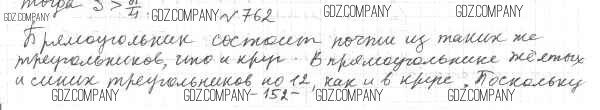 тогда S > π/4 .
GDZ.COMPANY
GDZ.COMPANY № 762 GDZ.COMPANY
Прямоугольник состоит почти из таких же
треугольников, что и круг. В прямоугольнике жёлтых
и синих треугольников по 12, как и в круге. Поскольку
GDZ.COMPANY GDZ.COMPANY -152- GDZ.COMPANY GDZ.COMPANY